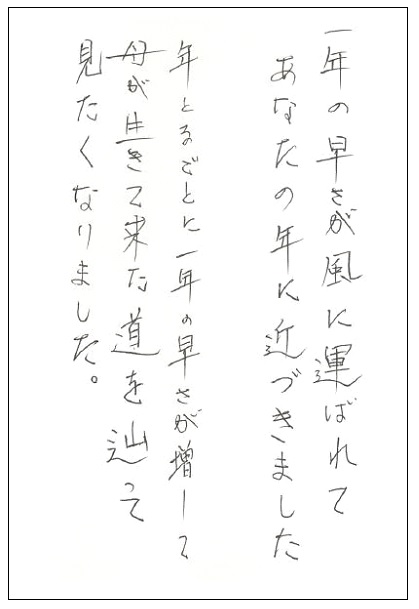 一年の早さが風に運ばれて
あなたの年に近づきました
年とるごとに一年の早さが増して
母が生きて来た道を辿って
見たくなりました。